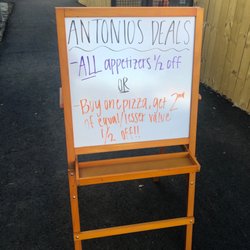 ANTONIO'S DEALS
-ALL appetizers 1/2 off
OR
-Buy one pizza, get 2nd
of equal/lesser value
1/2 off!!